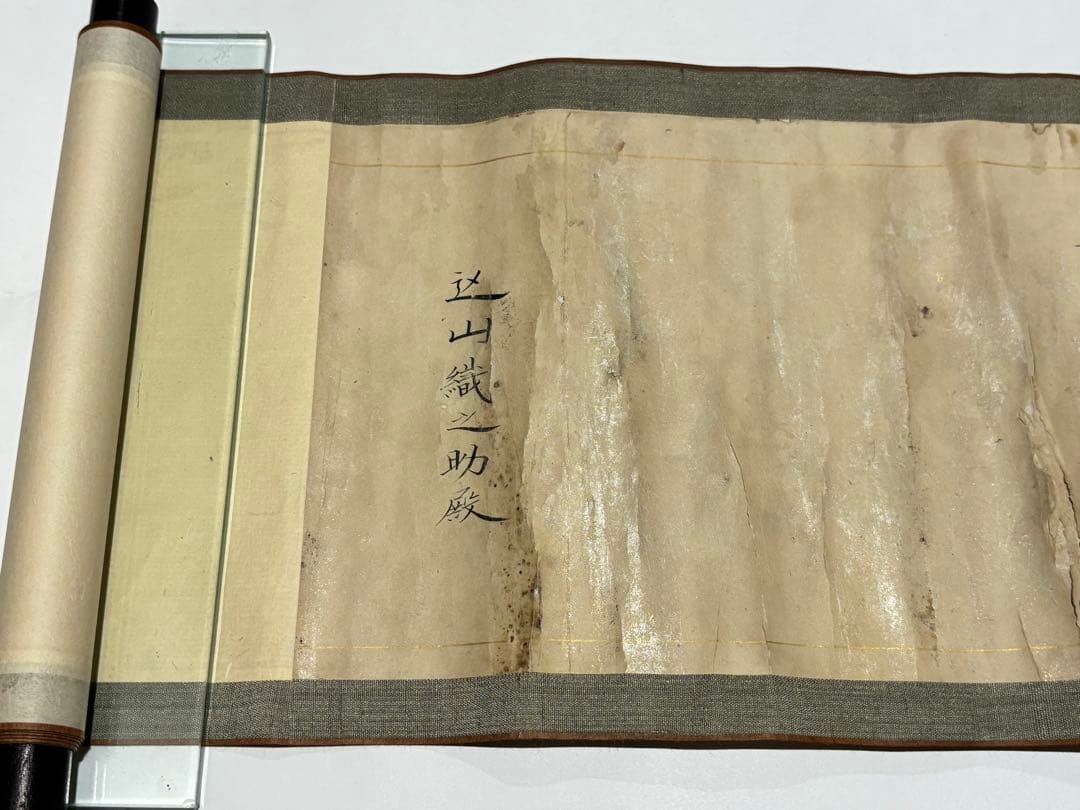 込山織之助殿